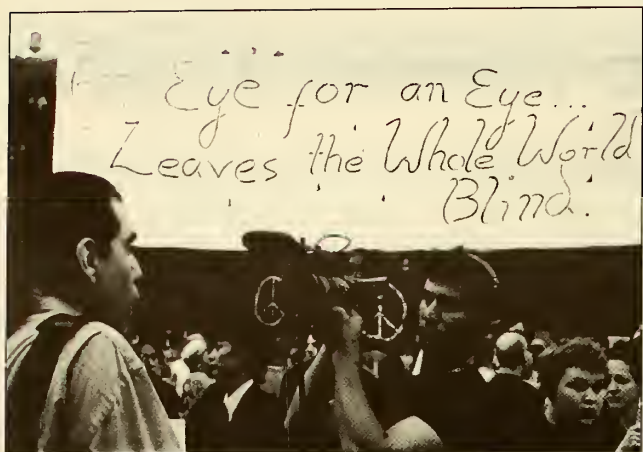 Eye for an Eye...
Leaves the Whole World
Blind.